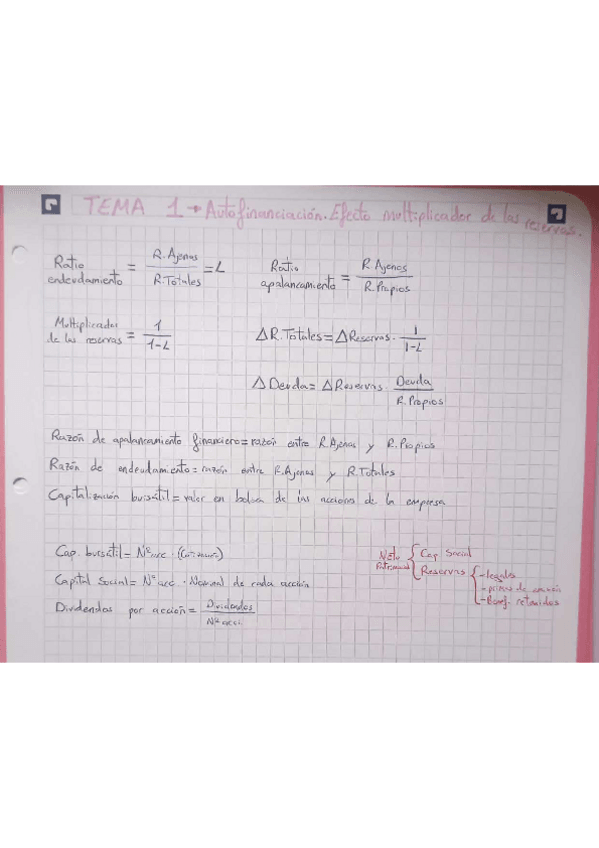 TEMA 1 → Autofinanciación. Efecto multiplicador de las reservas.
Ratio endeudamiento = R. Ajenos / R. Totales = L
Ratio apalancamiento = R Ajenos / R. Propios
Multiplicador de las reservas = 1 / 1-L
Δ R. Totales = Δ Reservas · 1 / 1-L
Δ Deuda = Δ Reservas · Deuda / R. Propios
Razón de apalancamiento financiero = razón entre R. Ajenos y R. Propios
Razón de endeudamiento = razón entre R. Ajenos y R. Totales
Capitalización bursátil = valor en bolsa de las acciones de la empresa
Cap. bursátil = Nº acc ·
Capital Social = Nº acc · Nominal de cada acción
Dividendos por acción = Dividendos / Nº acci.
Neto Patrimonial { Cap Social
Reservas { - legales
- prima de emisión
- Benef. retenidos